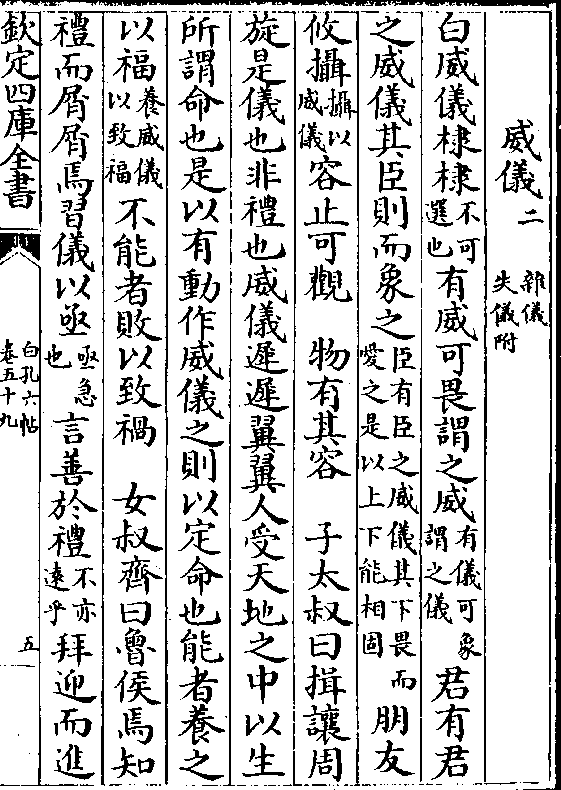 威儀二 雜儀 失儀附
白威儀棣棣 不可選也 有威可畏謂之威 有儀可象謂之儀 君有君
之威儀其臣則而象之 臣有臣之威儀其下畏而愛之是以上下能相固 朋友
攸攝 攝以威儀 容止可觀 物有其容 子太叔曰揖讓周
旋是儀也非禮也威儀遲遲翼翼人受天地之中以生
所謂命也是以有動作威儀之則以定命也能者養之
以福 養威儀以致福 不能者敗以致禍 女叔齊曰魯侯焉知
禮而屑屑焉習儀以亟 亟急也 言善於禮 不亦遠乎 拜迎而進
欽定四庫全書 白孔六帖 卷五十九 五